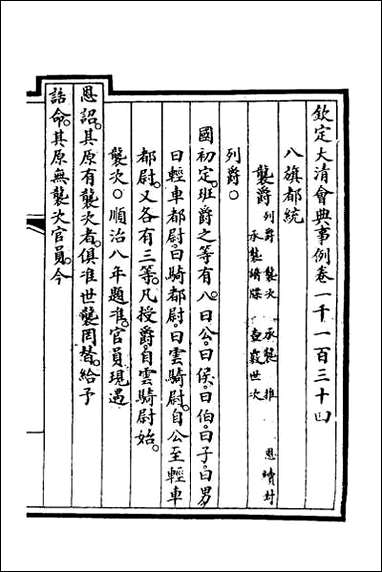 欽定大清會典事例卷一千一百三十四
八旗都統
襲爵 列爵 襲次 承襲 推 恩 承襲
國初定班爵之等有八曰公曰侯曰伯曰子曰男
曰輕車都尉曰騎都尉曰雲騎尉自公至輕車
都尉又各有三等凡授爵自雲騎尉始。
襲次○順治八年題准官員現遇
恩詔其原有襲次者俱准世襲罔替給予
誥命其原無襲次官員今